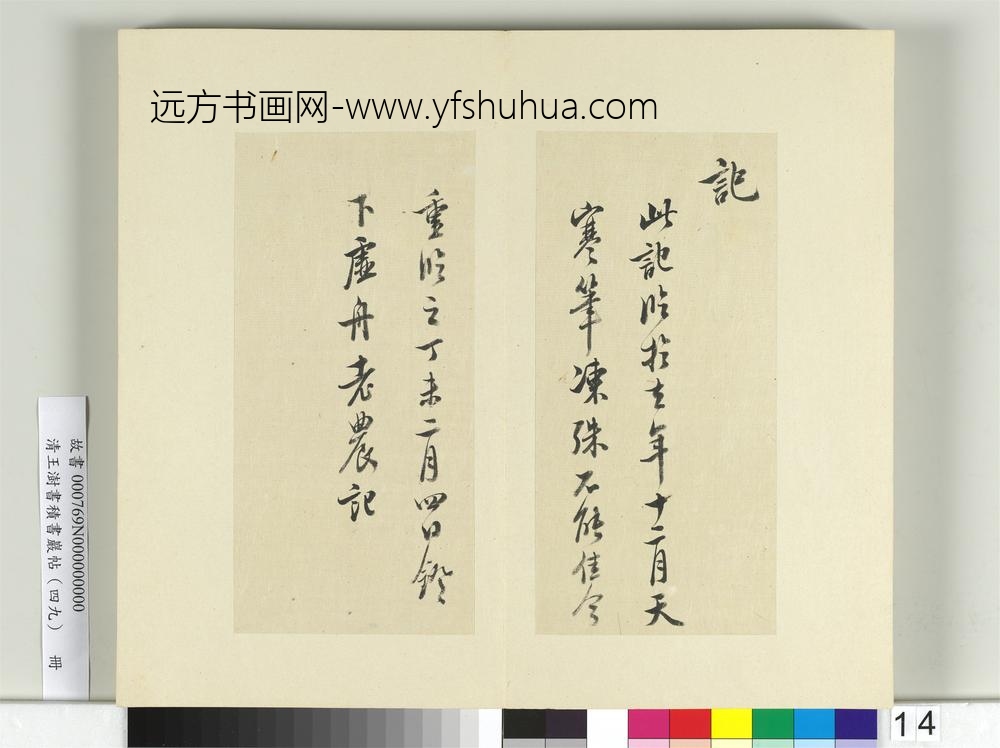 远方书画网-www.yfshuhua.com
記
此記臨於去年十二月天
寒筆凍殊不能佳今
重臨之丁未二月四日鐙
下虛舟老農記
故書 000769N000000000
清王澍書積書巖帖（四九） 冊
14